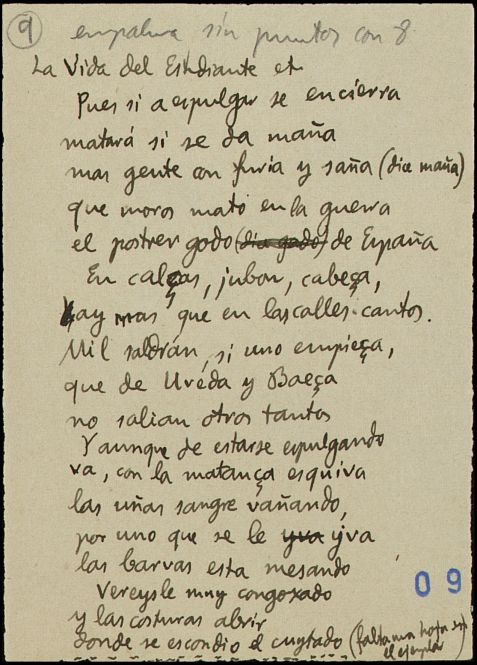 9 empalma sin puntos con 8
La Vida del Estudiante et
Pues si a espulgar se encierra
matará si se da maña
mas gente con furia y saña (dice maña)
que moros mató en la guerra
el postrer godo (dia godo) de España
En calças, jubon, cabeça,
hay mas que en las calles cantos.
Mil saldrán, si uno empieça,
que de Uveda y Baeça
no salian otros tantos
Y aunque de estarse espulgando
va, con la matança esquiva
las uñas sangre vañando,
por uno que se le yva yva
las barvas esta mesando
Vereysle muy congoxado
y las costuras abrir
donde se escondio el cuytado (falta una hoja en
el ejemplar
09